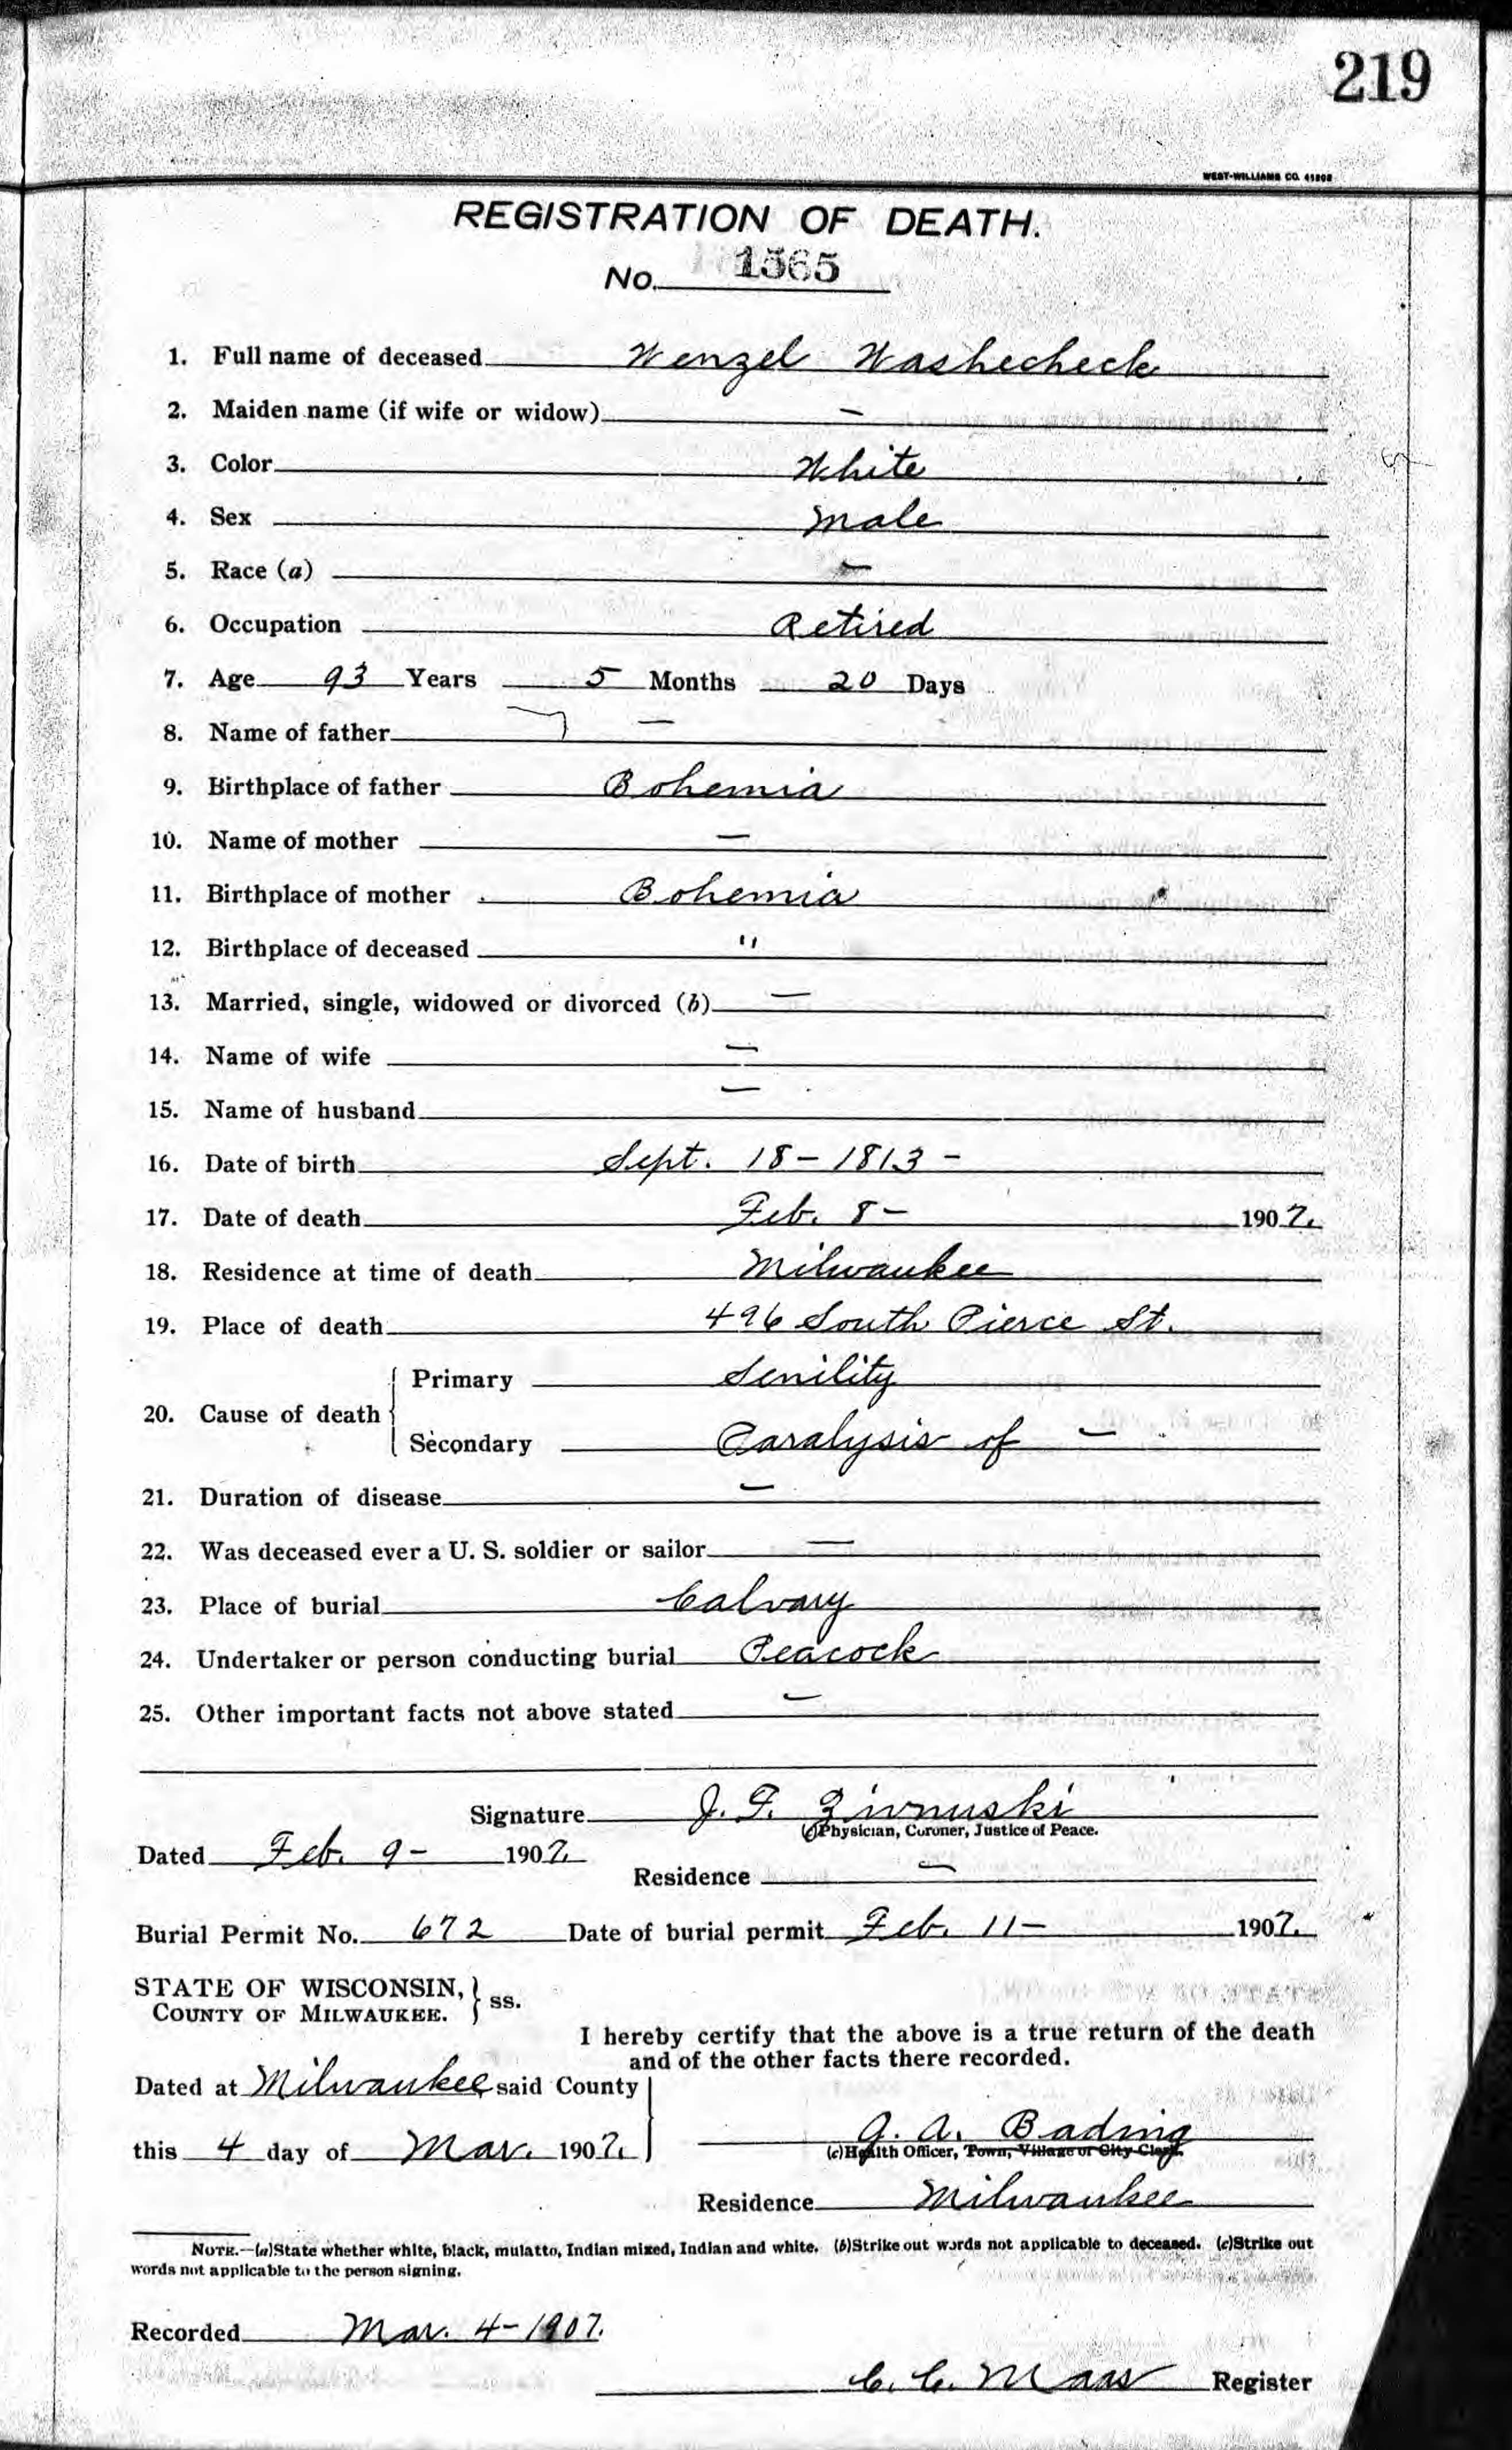 219
WEST-WILLIAMS CO. 41898
REGISTRATION OF DEATH.
No. 1565
1. Full name of deceased Wenzel Washecheck
2. Maiden name (if wife or widow) —
3. Color White
4. Sex Male
5. Race (a) —
6. Occupation Retired
7. Age 93 Years 5 Months 20 Days
8. Name of father —
9. Birthplace of father Bohemia
10. Name of mother —
11. Birthplace of mother Bohemia
12. Birthplace of deceased "
13. Married, single, widowed or divorced (b) —
14. Name of wife —
15. Name of husband —
16. Date of birth Sept. 18 - 1813 -
17. Date of death Feb. 8 - 1907.
18. Residence at time of death Milwaukee
19. Place of death 496 South Pierce St.
20. Cause of death Primary Senility
Secondary Paralysis of —
21. Duration of disease —
22. Was deceased ever a U. S. soldier or sailor —
23. Place of burial Calvary
24. Undertaker or person conducting burial Peacock
25. Other important facts not above stated —
Signature J. F. Zivnuski
(c) Physician, Coroner, Justice of Peace.
Dated Feb. 9 - 1907.
Residence —
Burial Permit No. 672 Date of burial permit Feb. 11 - 1907.
STATE OF WISCONSIN,
COUNTY OF MILWAUKEE. } ss.
I hereby certify that the above is a true return of the death
and of the other facts there recorded.
Dated at Milwaukee said County
this 4 day of Mar. 1907.
G. A. Bading
(c) Health Officer, Town, Village or City Clerk.
Residence Milwaukee
NOTE.—(a)State whether white, black, mulatto, Indian mixed, Indian and white. (b)Strike out words not applicable to deceased. (c)Strike out
words not applicable to the person signing.
Recorded Mar. 4 - 1907.
C. C. Maas Register